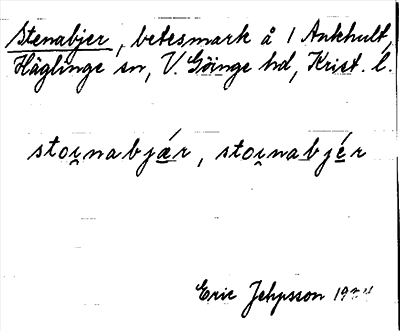 Stenabjer, betesmark å 1 Ankhult,
Häglinge sn, V. Göinge hd, Krist. l.
stoi̯nabjǽr, stoi̯nabjér
Eric Jehpsson